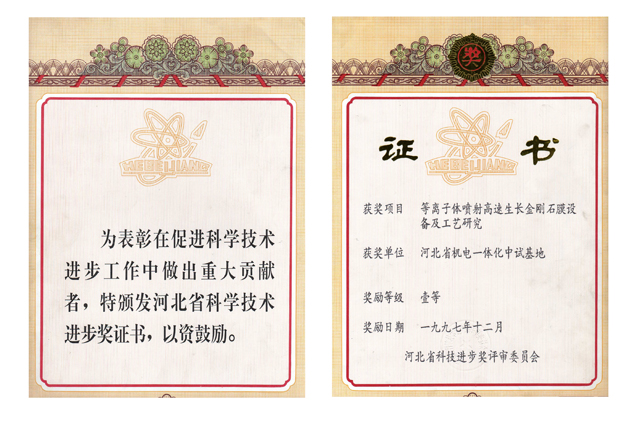 HEBEIJIANG
为表彰在促进科学技术
进步工作中做出重大贡献
者，特颁发河北省科学技术
进步奖证书，以资鼓励。
奖
HEBEIJIANG
证书
获奖项目 等离子体喷射高速生长金刚石膜设
备及工艺研究
获奖单位 河北省机电一体化中试基地
奖励等级 壹等
奖励日期 一九九七年十二月
河北省科技进步奖评审委员会